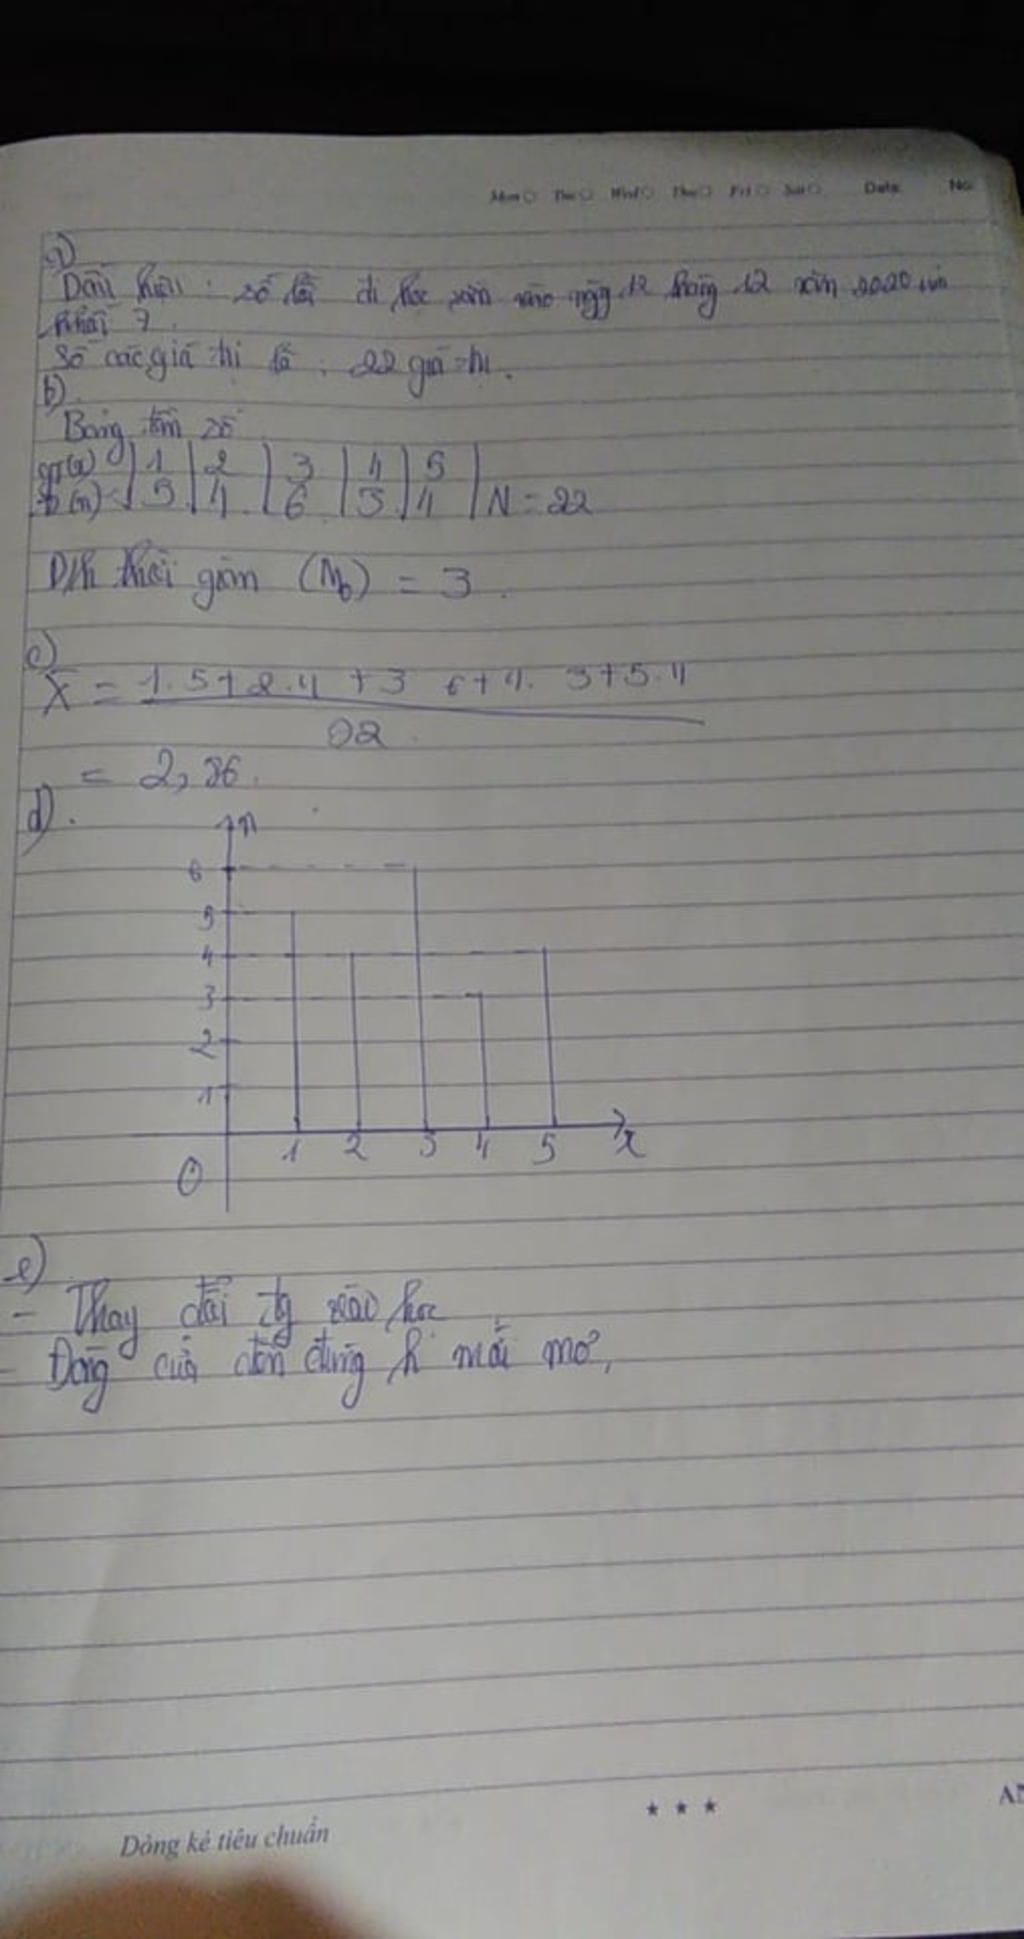 Mon Tue Wed Thu Fri Sat Date No
a)
Dấu hiệu : số đi học ngày 12 tháng 12 năm 2020
khối 7.
Số các giá trị là : 22 giá trị.
b)
Bảng tần số
(x) | 1 | 2 | 3 | 4 | 5 |
(n) | 5 | 4 | 6 | 3 | 4 | N = 22
gian (M₀) = 3.
c)
X̄ = 1.5+2.4+3 6+4. 3+5.4
= 2,86.
d).
n
6
5
4
3
2
1
O 1 2 3 4 5 x
e)
- Thay đổi tg vào học
- Đóng cửa đến đúng h mới mở,
Dòng kẻ tiêu chuẩn
★ ★ ★